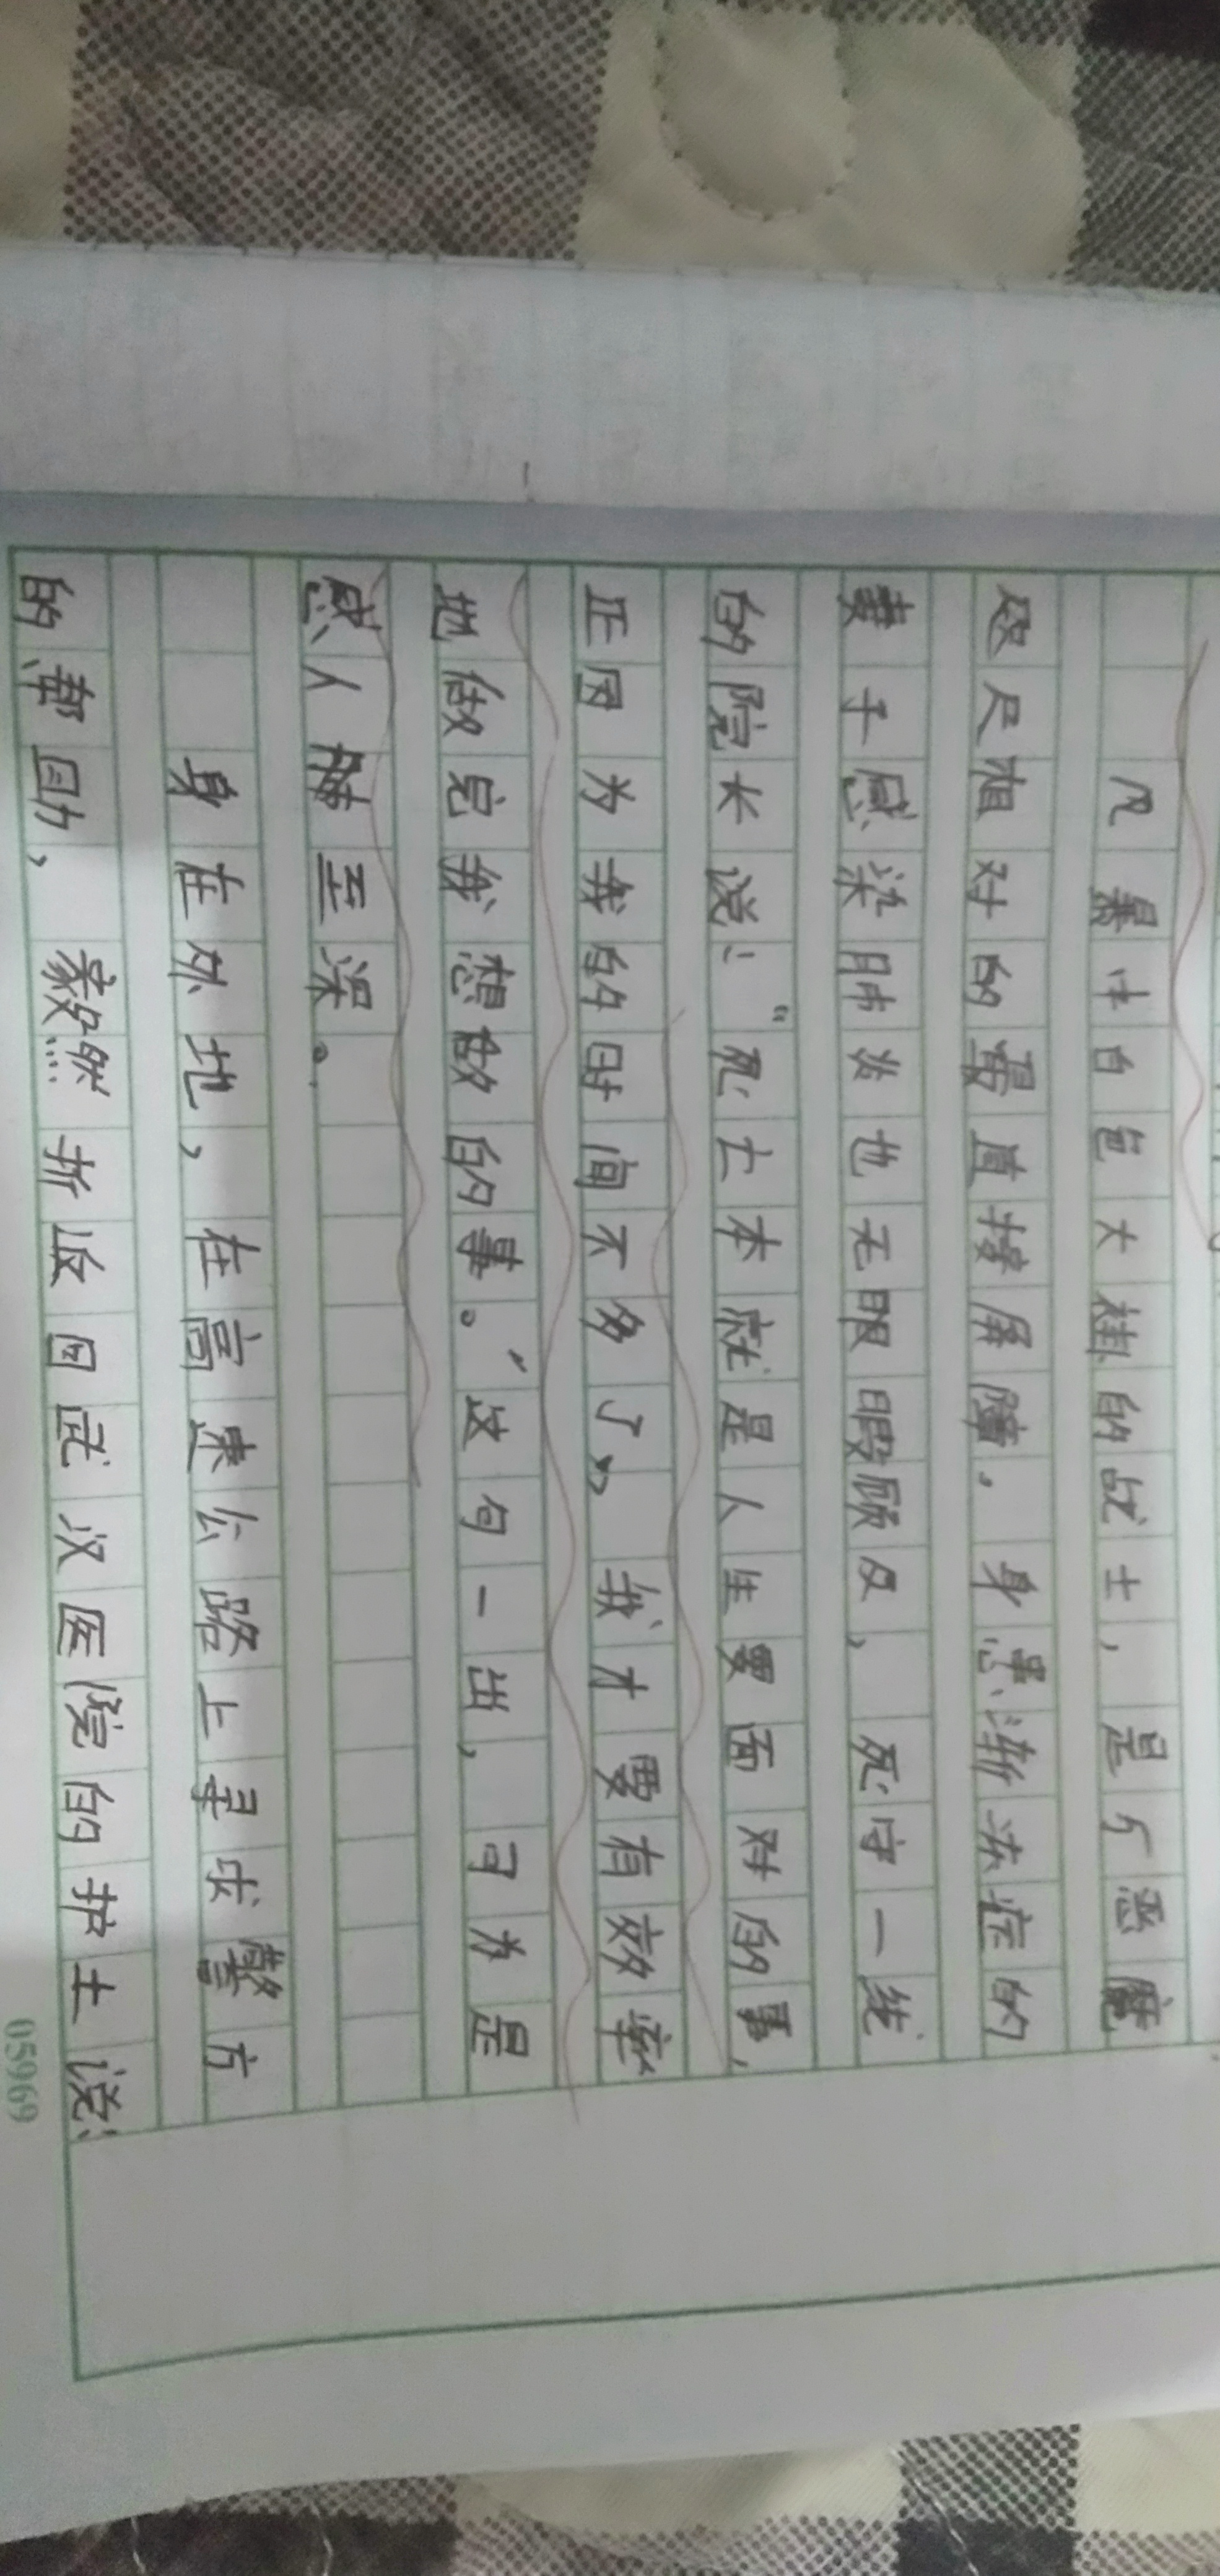 风暴中白色大褂的战士，是个恶魔
咫尺相对的最直接屏障。身患渐冻症的
妻子感染肺炎也无暇顾及，死守一线
的院长说：“死亡本就是人生要面对的事，
正因为我的时间不多了，我才要有效率
地做完我想做的事。”这句一出，可为是
感人肺至深。
身在外地，在高速公路上寻求警方
的帮助，毅然折返回武汉医院的护士说：
05969